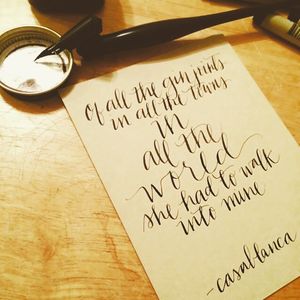 Of all the gin joints
in all the towns
in
all the
world
she had to walk
into mine
-casablanca